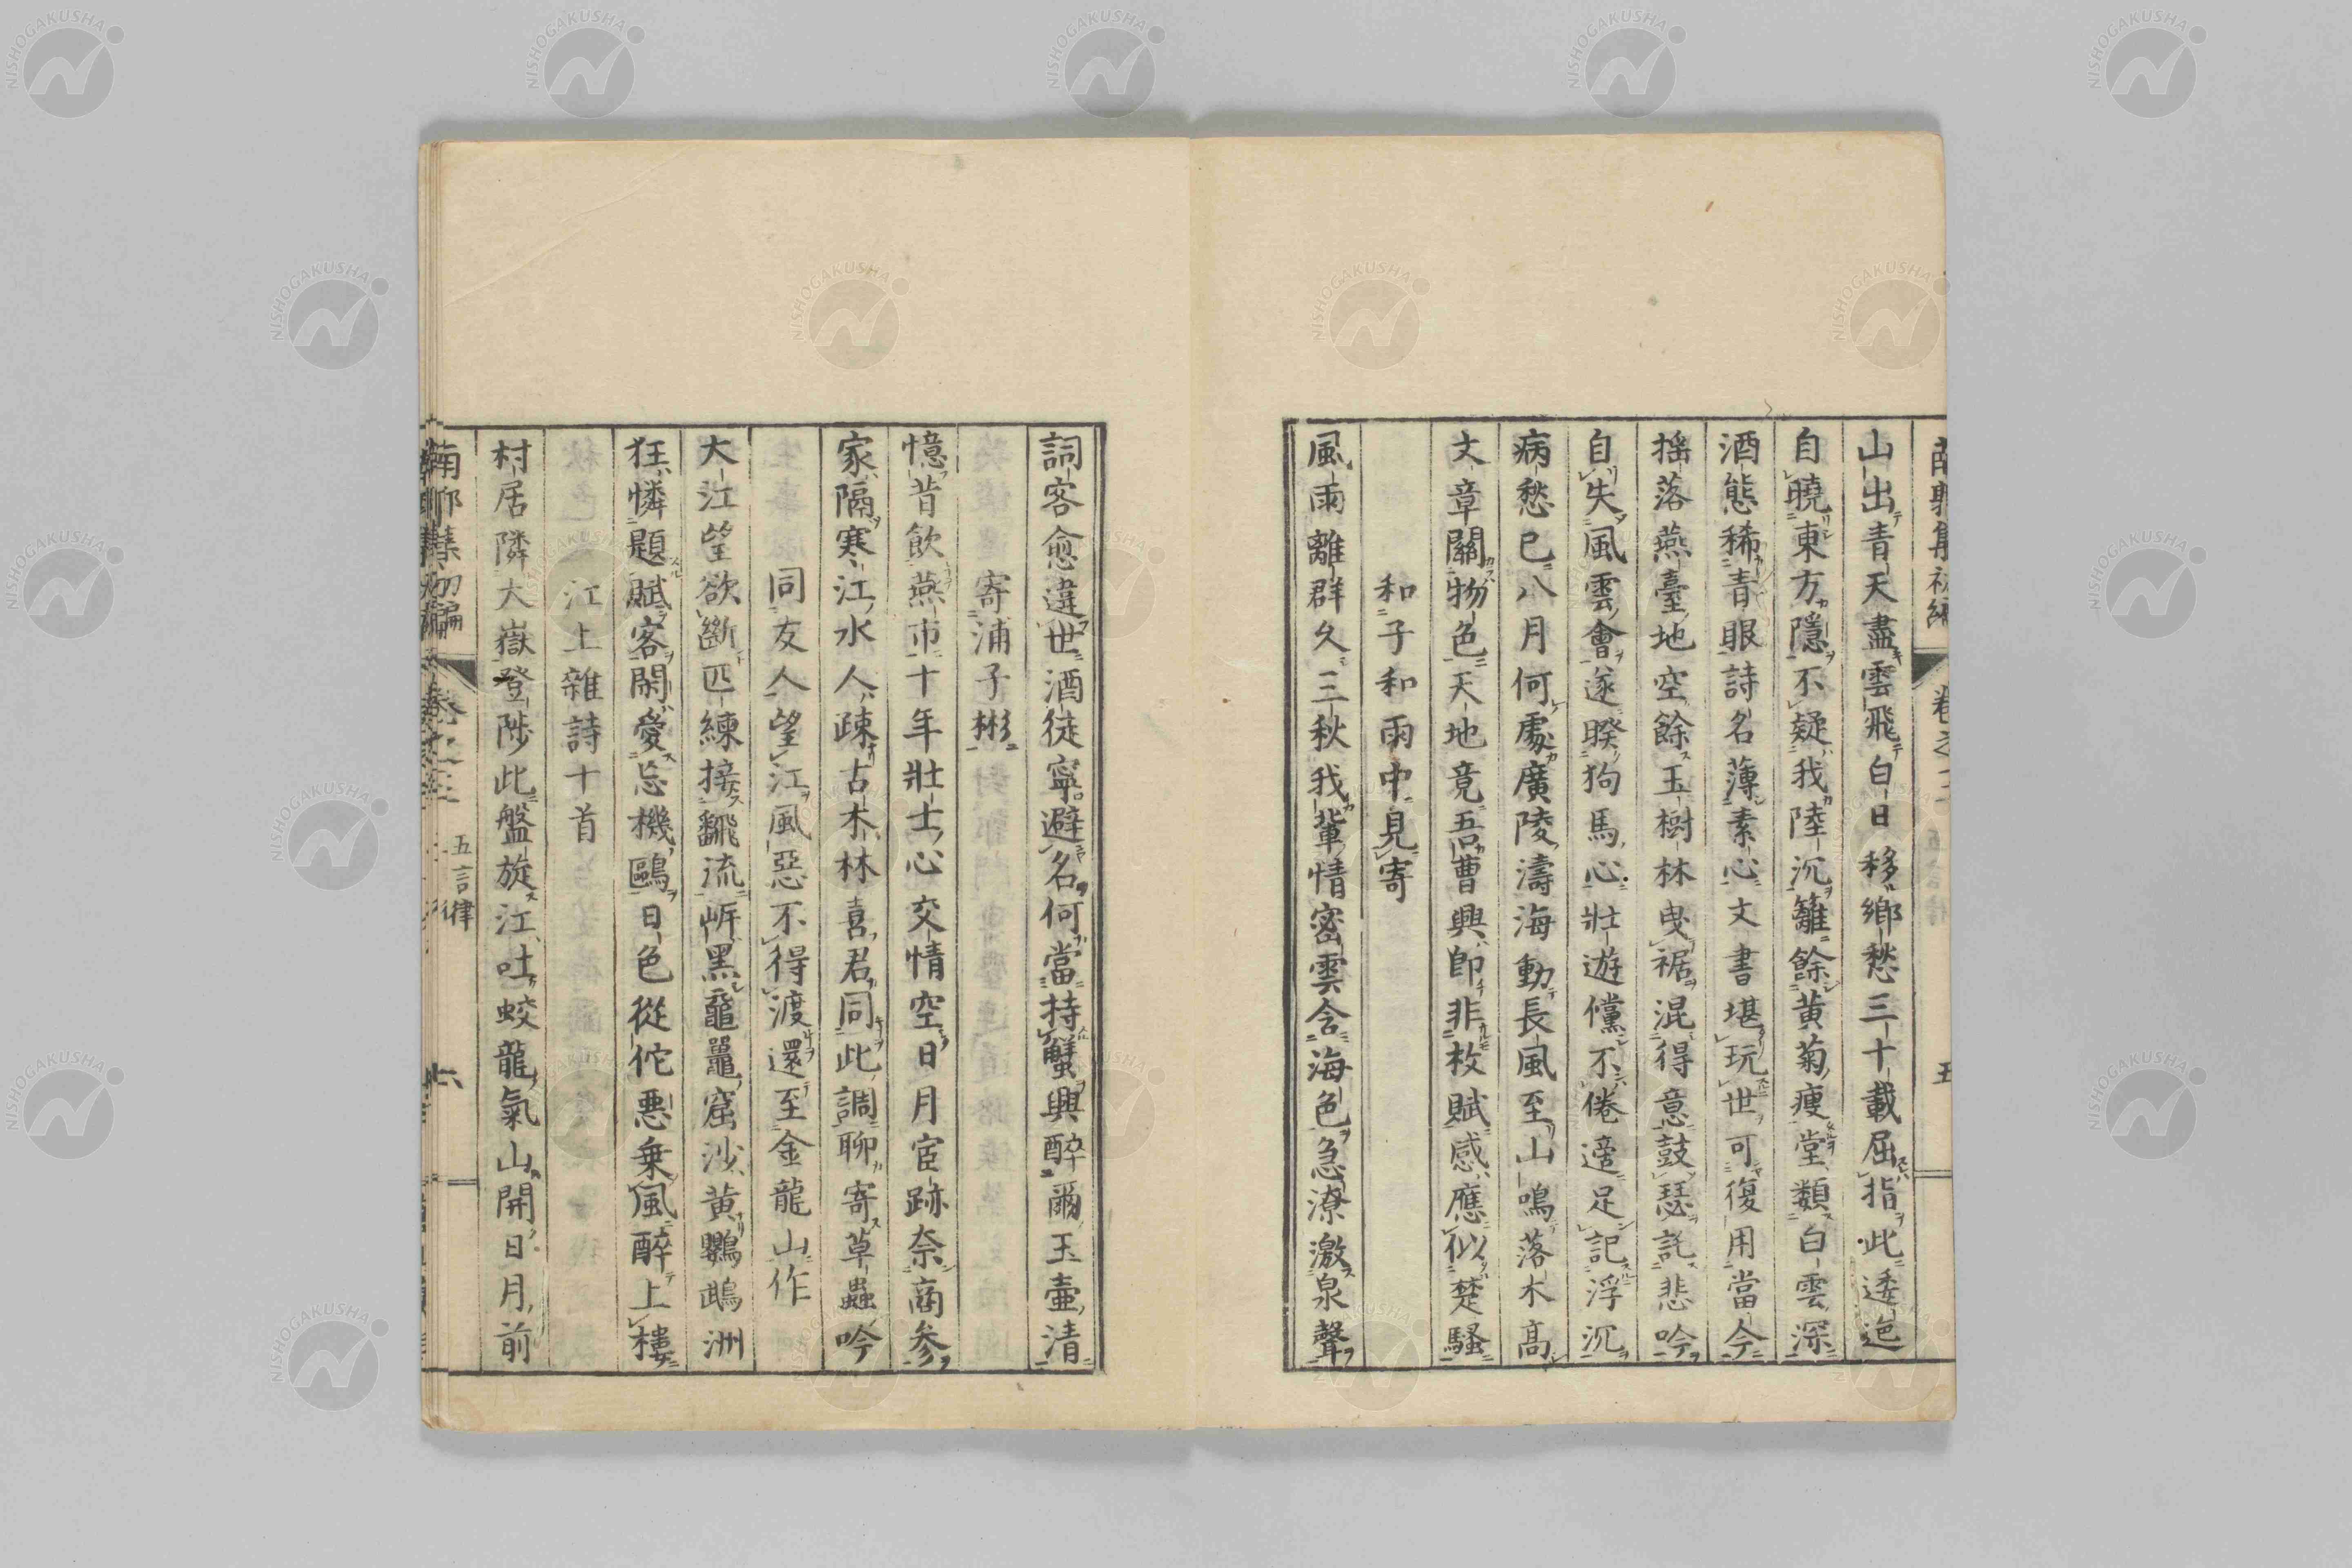 山出青天盡雲飛白日移鄉愁三十載屈指此逶迤
自曉東方隱不疑我陸沉籬餘黄菊瘦堂類白雲深
酒態稀青眼詩名薄素心文書堪玩世可復用當今
揺落燕臺地空餘玉樹林曳裾混得意鼓瑟託悲吟
自失風雲會遂睽狗馬心壯遊儻不倦遄足記浮沉
病愁已八月何處廣陵濤海動長風至山鳴落木高
文章關物色天地竟吾曹興即非枚賦感應似楚騷
和子和雨中見寄
風雨離群久三秋我輩情密雲含海色急潦激泉聲
詞客愈違世酒徒寧避名何當持蟹興醉爾玉壷清
寄浦子彬
憶昔飲燕市十年壯士心交情空日月宦跡奈商参
家隔寒江水人疎古木林喜君同此調聊寄草蟲吟
同友人望江風惡不得渡還至金龍山作
大江望欲斷匹練接飜流岓黑黿鼉窟沙黄鸚鵡洲
狂憐題賦客閑愛忘機鷗日色從佗悪乗風醉上樓
江上雜詩十首
村居隣大嶽登陟此盤旋江吐蛟龍氣山開日月前
南郭集初編
卷之三
五言律
六